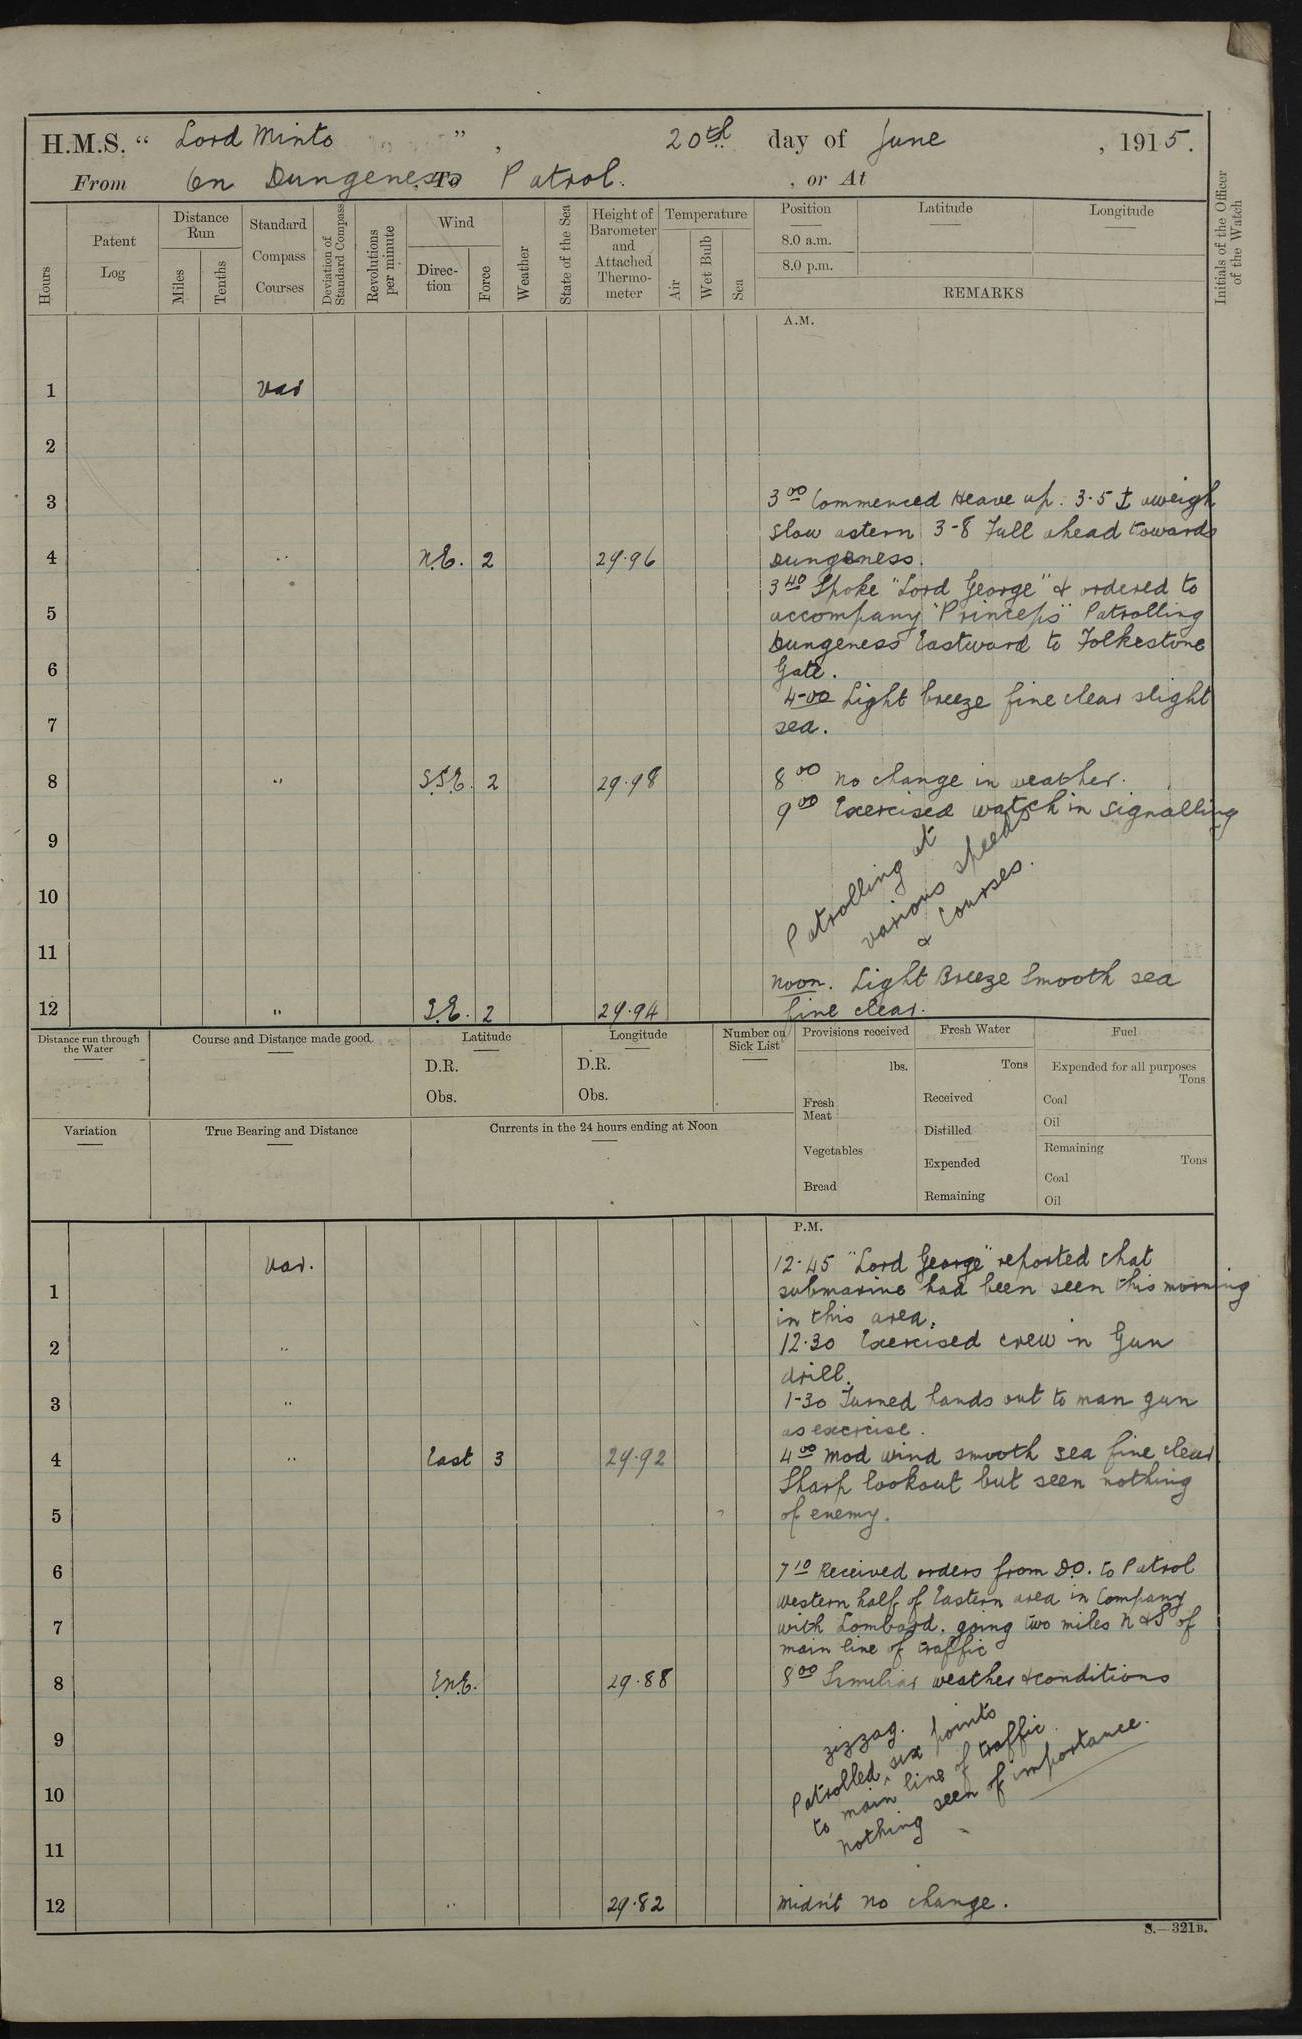 H.M.S. “ Lord Minto ”, 20th day of June , 1915.
From On Dungeness To Patrol. , or At
Hours
Patent Log
Distance Run
Miles
Tenths
Standard Compass Courses
Deviation of Standard Compass
Revolutions per minute
Wind
Direc-tion
Force
Weather
State of the Sea
Height of Barometer and Attached Thermo-meter
Temperature
Air
Wet Bulb
Sea
Position Latitude Longitude
8.0 a.m.
8.0 p.m.
REMARKS
Initials of the Officer of the Watch
A.M.
1 Var
2
3 3 00 Commenced Heave up. 3-5 ⚓ aweigh
slow astern 3-8 Full ahead towards
4 " N.E. 2 29.96 Dungeness.
3 40 Spoke "Lord George" & ordered to
5 accompany "Princeps" Patrolling
Dungeness Eastward to Folkestone
6 Gate.
4-00 Light breeze fine clear slight
7 sea.
8 " S.S.E. 2 29.98 8 00 No change in weather.
9 00 Exercised watch in signalling
9
10
11
Patrolling at
various speeds
& courses.
Noon. Light Breeze Smooth sea
12 " S.E. 2 29.94 fine clear.
Distance run through the Water
Course and Distance made good
Latitude
D.R.
Obs.
Longitude
D.R.
Obs.
Number on Sick List
Provisions received
lbs.
Fresh Meat
Vegetables
Bread
Fresh Water
Tons
Received
Distilled
Expended
Remaining
Fuel
Expended for all purposes
Tons
Coal
Oil
Remaining
Tons
Coal
Oil
Variation
True Bearing and Distance
Currents in the 24 hours ending at Noon
P.M.
Var. 12-45 "Lord George" reported that
1 submarine had been seen this morning
in this area.
2 " 12.30 Exercised crew in Gun
drill.
3 " 1-30 Turned hands out to man gun
as exercise.
4 " East 3 29.92 4 00 Mod wind smooth sea fine clear.
Sharp lookout but seen nothing
5 of enemy.
6 7 10 Received orders from D.O. to Patrol
western half of Eastern area in Company
7 with Lombard. going two miles N & S of
main line of traffic
8 E.N.E. 29.88 8 00 Similiar weather & conditions
9
10
11
zizzag.
Patrolled, six points
to main line of traffic.
Nothing seen of importance.
12 " 29.82 Midn't no change.
S.—321B.